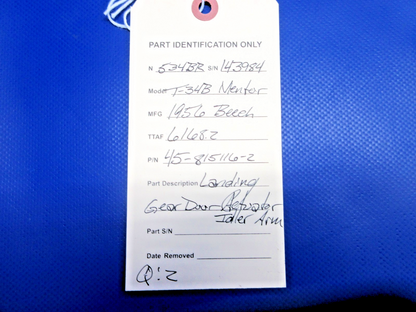 PART IDENTIFICATION ONLY
N 534BR S/N 143984
Model T-34B Mentor
MFG 1956 Beech
TTAF 6168.2
P/N 45-815116-2
Part Description Landing
Gear Door Actuator
Idler Arm
Part S/N
Date Removed
Q:2